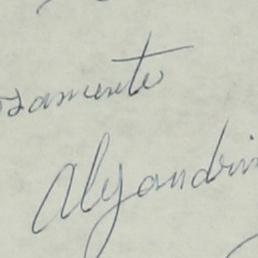 osamente
Alejandrin